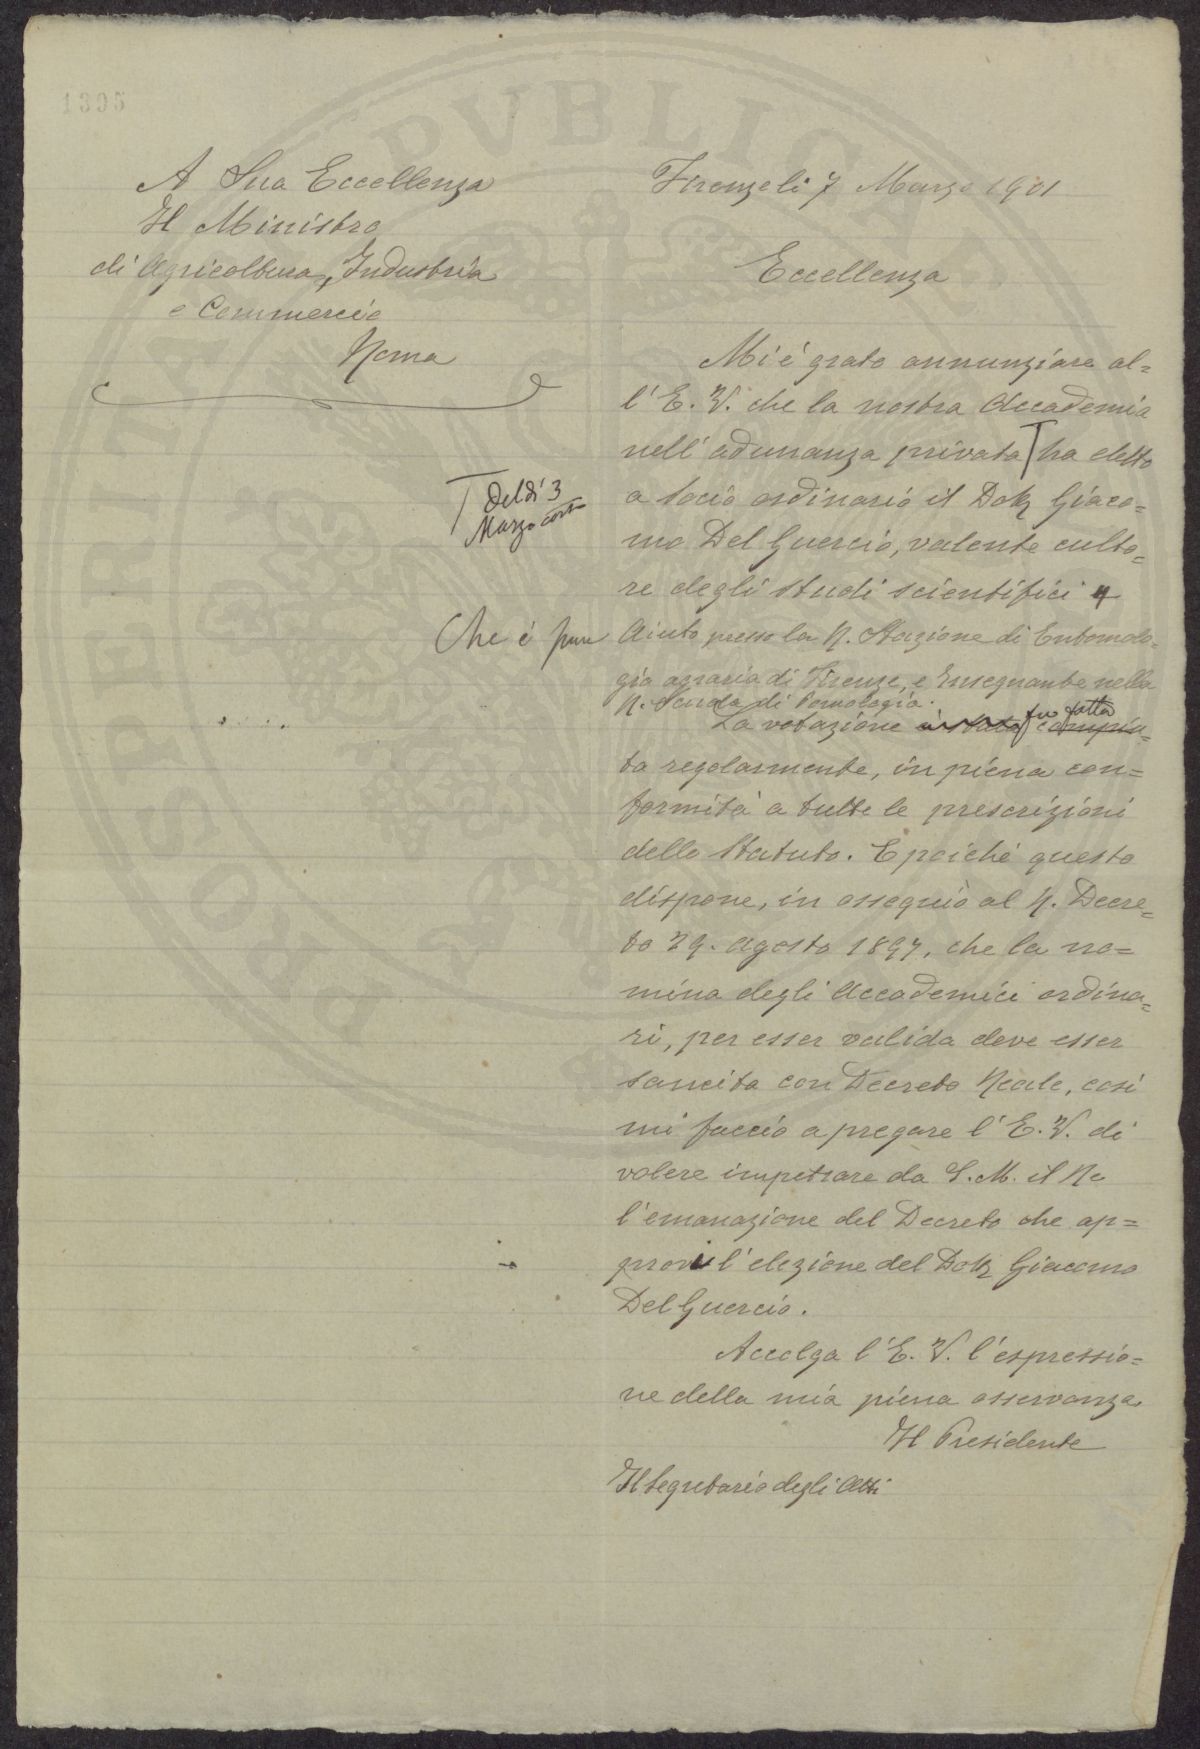 1395
A Sua Eccellenza
Il Ministro
di Agricoltura, Industria
e Commercio
Roma
Firenze li 7 Marzo 1901
Eccellenza
Mi è grato annunziare al=
l'E. V. che la nostra Accademia
nell'adunanza privata ⌈ ha eletto
⌈ del dì 3
Marzo corr.
a Socio ordinario il Dott. Giaco=
mo Del Guercio, valente culto=
re degli studi scientifici
Che è pure Aiuto presso la R. Stazione di Entomolo=
gia agraria di Firenze, e Insegnante nella
R. Scuola di Pomologia.
La votazione è stata fu fatta compiu=
ta regolarmente, in piena con=
formità a tutte le prescrizioni
dello Statuto. E poichè questo
dispone, in ossequio al R. Decre=
to 29. Agosto 1897, che la no=
mina degli Accademici ordina=
ri, per esser valida deve esser
sancita con Decreto Reale, così
mi faccio a pregare l'E. V. di
volere impetrare da S. M. il Re
l'emanazione del Decreto che ap=
provi l'elezione del Dott. Giacomo
Del Guercio.
Accolga l'E. V. l'espressio=
ne della mia piena osservanza.
Il Presidente
Il Segretario degli Atti